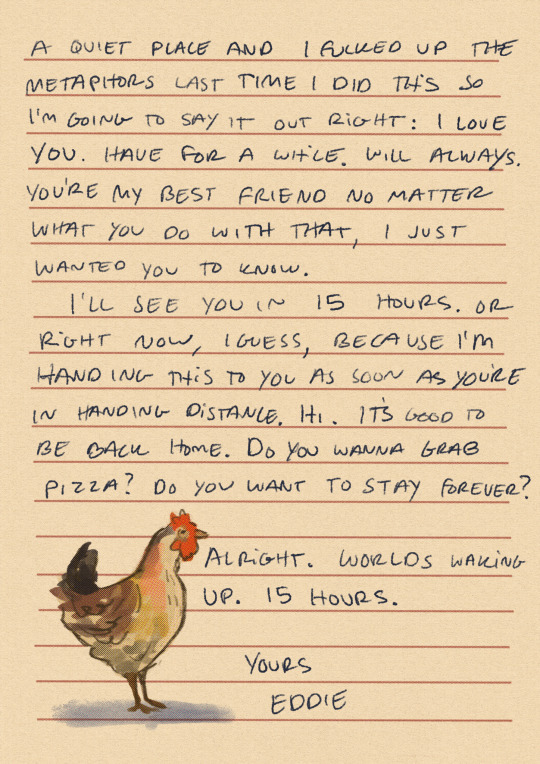 A QUIET PLACE AND I FUCKED UP THE
METAPHORS LAST TIME I DID THIS SO
I'M GOING TO SAY IT OUT RIGHT: I LOVE
YOU. HAVE FOR A WHILE. WILL ALWAYS.
YOU'RE MY BEST FRIEND NO MATTER
WHAT YOU DO WITH THAT, I JUST
WANTED YOU TO KNOW.
I'LL SEE YOU IN 15 HOURS. OR
RIGHT NOW, I GUESS, BECAUSE I'M
HANDING THIS TO YOU AS SOON AS YOU'RE
IN HANDING DISTANCE. HI. IT'S GOOD TO
BE BACK HOME. DO YOU WANNA GRAB
PIZZA? DO YOU WANT TO STAY FOREVER?
ALRIGHT. WORLDS WAKING
UP. 15 HOURS.
YOURS
EDDIE